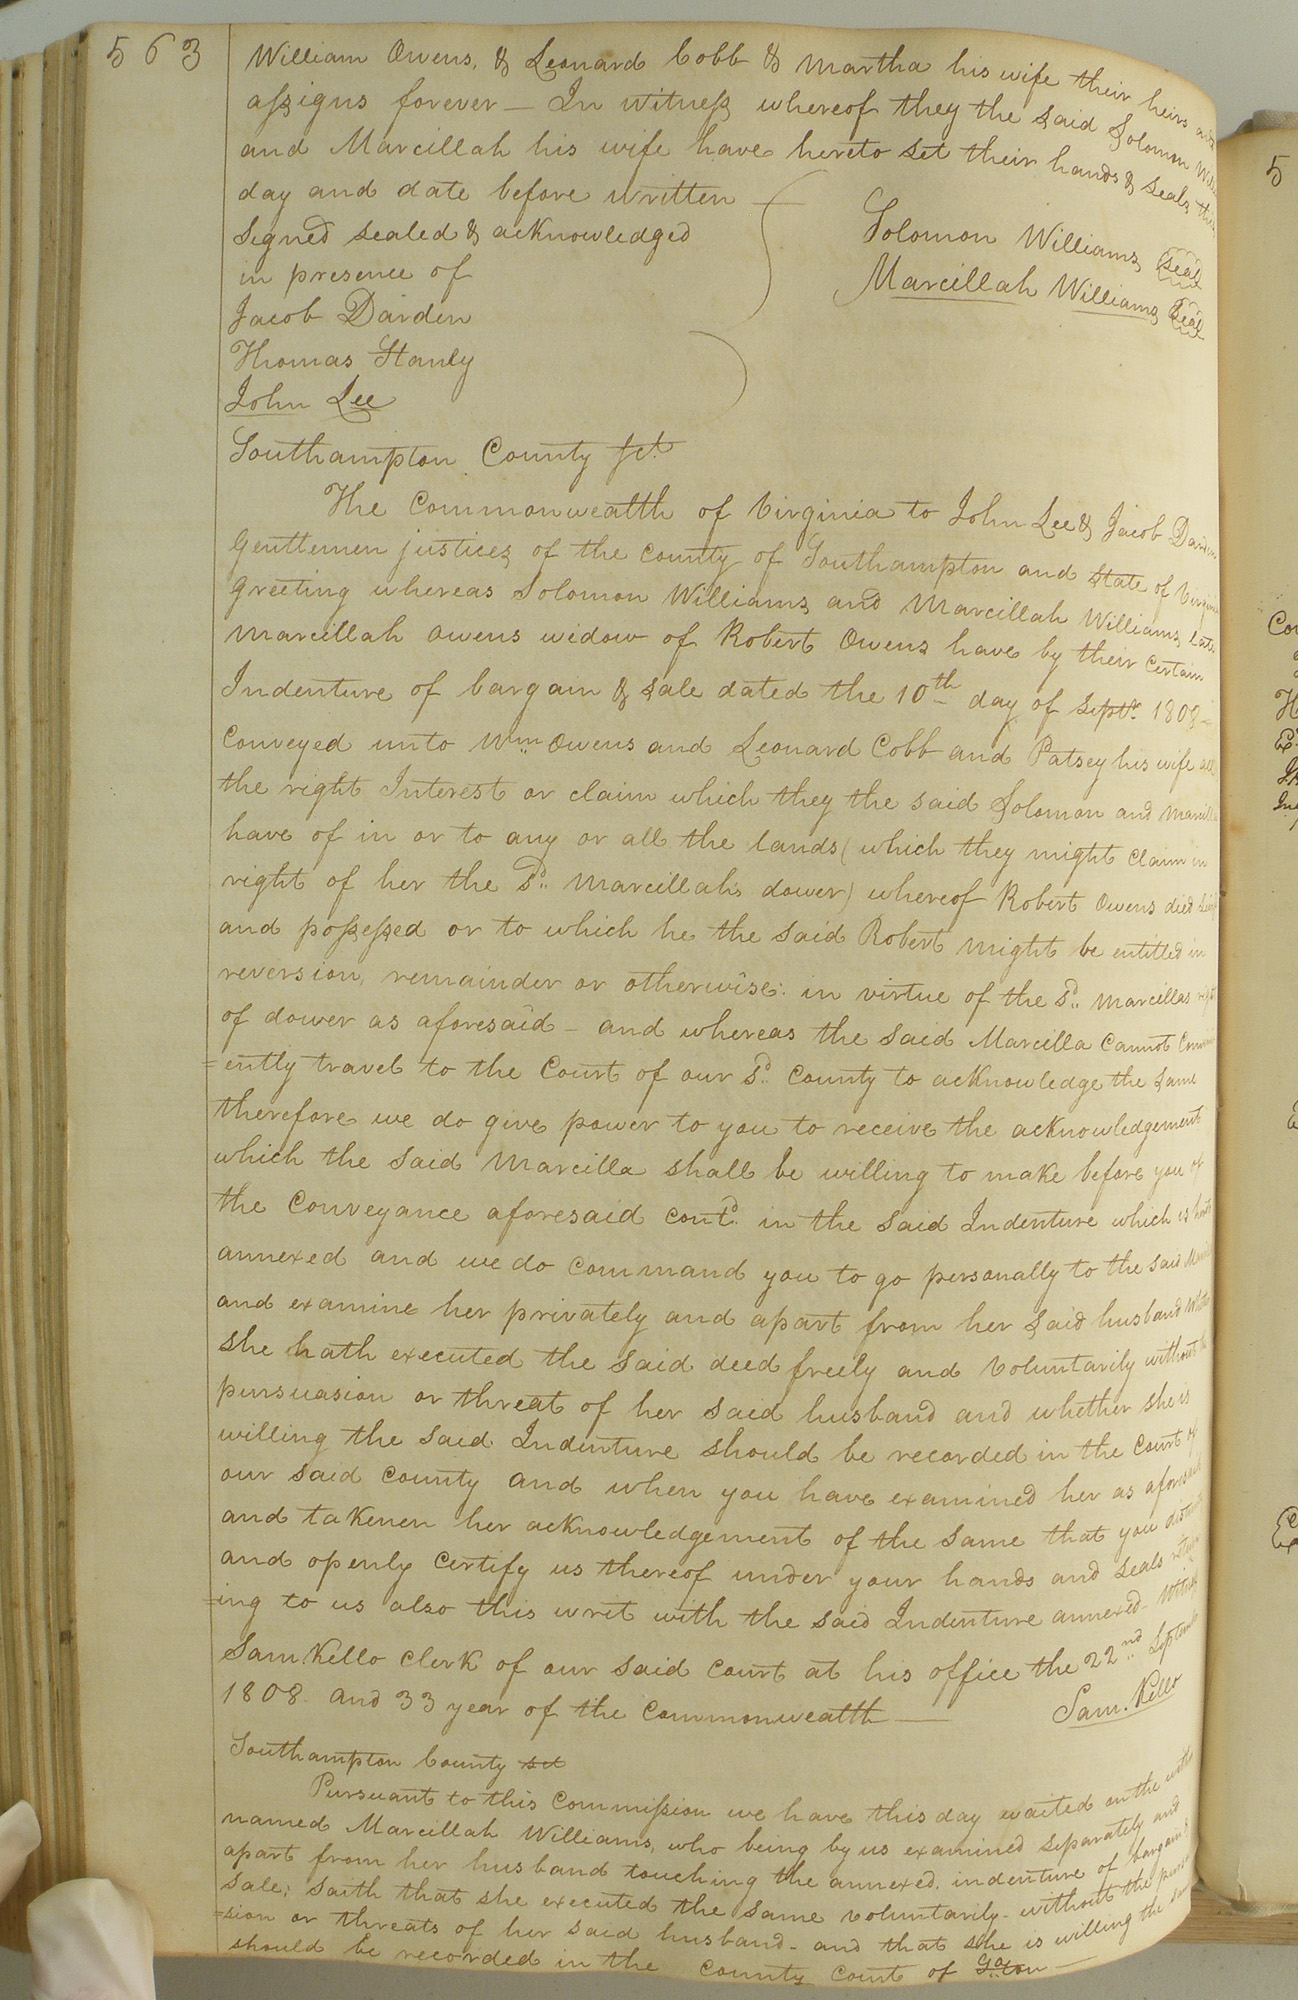 563
William Owens, & Leonard Cobb & Martha his wife their heirs and
assigns forever — In witness whereof they the said Solomon
and Marcillah his wife have hereto set their hands & seals this
day and date before written
Signed sealed & acknowledged
in presence of
Solomon Williams Seal
Marcillah Williams Seal
Jacob Darden
Thomas Stanly
John Lee
Southampton County Sct.
The Commonwealth of Virginia to John Lee & Jacob Darden
Gentlemen justices of the county of Southampton and State of Virginia
Greeting whereas Solomon Williams and Marcillah Williams late
Marcillah Owens widow of Robert Owens have by their certain
Indenture of bargain & sale dated the 10th day of Septr. 1808 —
Conveyed unto Wm Owens and Leonard Cobb and Patsey his wife all
the right Interest or claim which they the said Solomon and
have of in or to any or all the lands (which they might claim in
right of her the Sd. Marcillah's dower) whereof Robert Owens died
and possessed or to which he the said Robert might be entitled in
reversion, remainder or otherwise: in virtue of the Sd. Marcillas right
of dower as aforesaid — and whereas the said Marcilla Cannot
=ently travel to the Court of our Sd. County to acknowledge the same
therefore we do give power to you to receive the acknowledgement
which the said Marcilla shall be willing to make before you of
the Conveyance aforesaid contd. in the said Indenture which is
annexed and we do command you to go personally to the said
and examine her privately and apart from her said husband
she hath executed the said deed freely and voluntarily without
pursuasion or threat of her said husband and whether she is
willing the said Indenture should be recorded in the Court of
our said county and when you have examined her as aforesaid
and takenen her acknowledgement of the same that you
and openly certify us thereof under your hands and seals
=ing to us also this writ with the said Indenture annexed — Witness
Sam Kello Clerk of our said Court at his office the 22nd September
1808 and 33 year of the Commonwealth — Sam. Kello
Southampton County sct
Pursuant to this Commission we have this day waited on the
named Marcillah Williams, who being by us examined separately and
apart from her husband touching the annexed indenture of bargain &
Sale; saith that she executed the same voluntarily — without the
=sion or threats of her said husband — and that she is willing the
should be recorded in the county court of
5